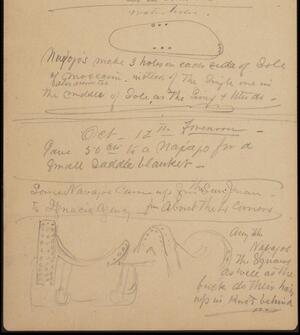 Navajo's make 3 holes on each side of Sole
of moccasin instead of the Single one in
the middle of Sole, as the
Oct - 12th Forenoon
Gave 50 cts to a Navajo for a
Small Saddle blanket -
Some Navajos Came up from San Juan
to Ignacio Agency for About the 4 Corners
Navajos
the Squaws
as well as the
bucks do their hair
up in Knot behind